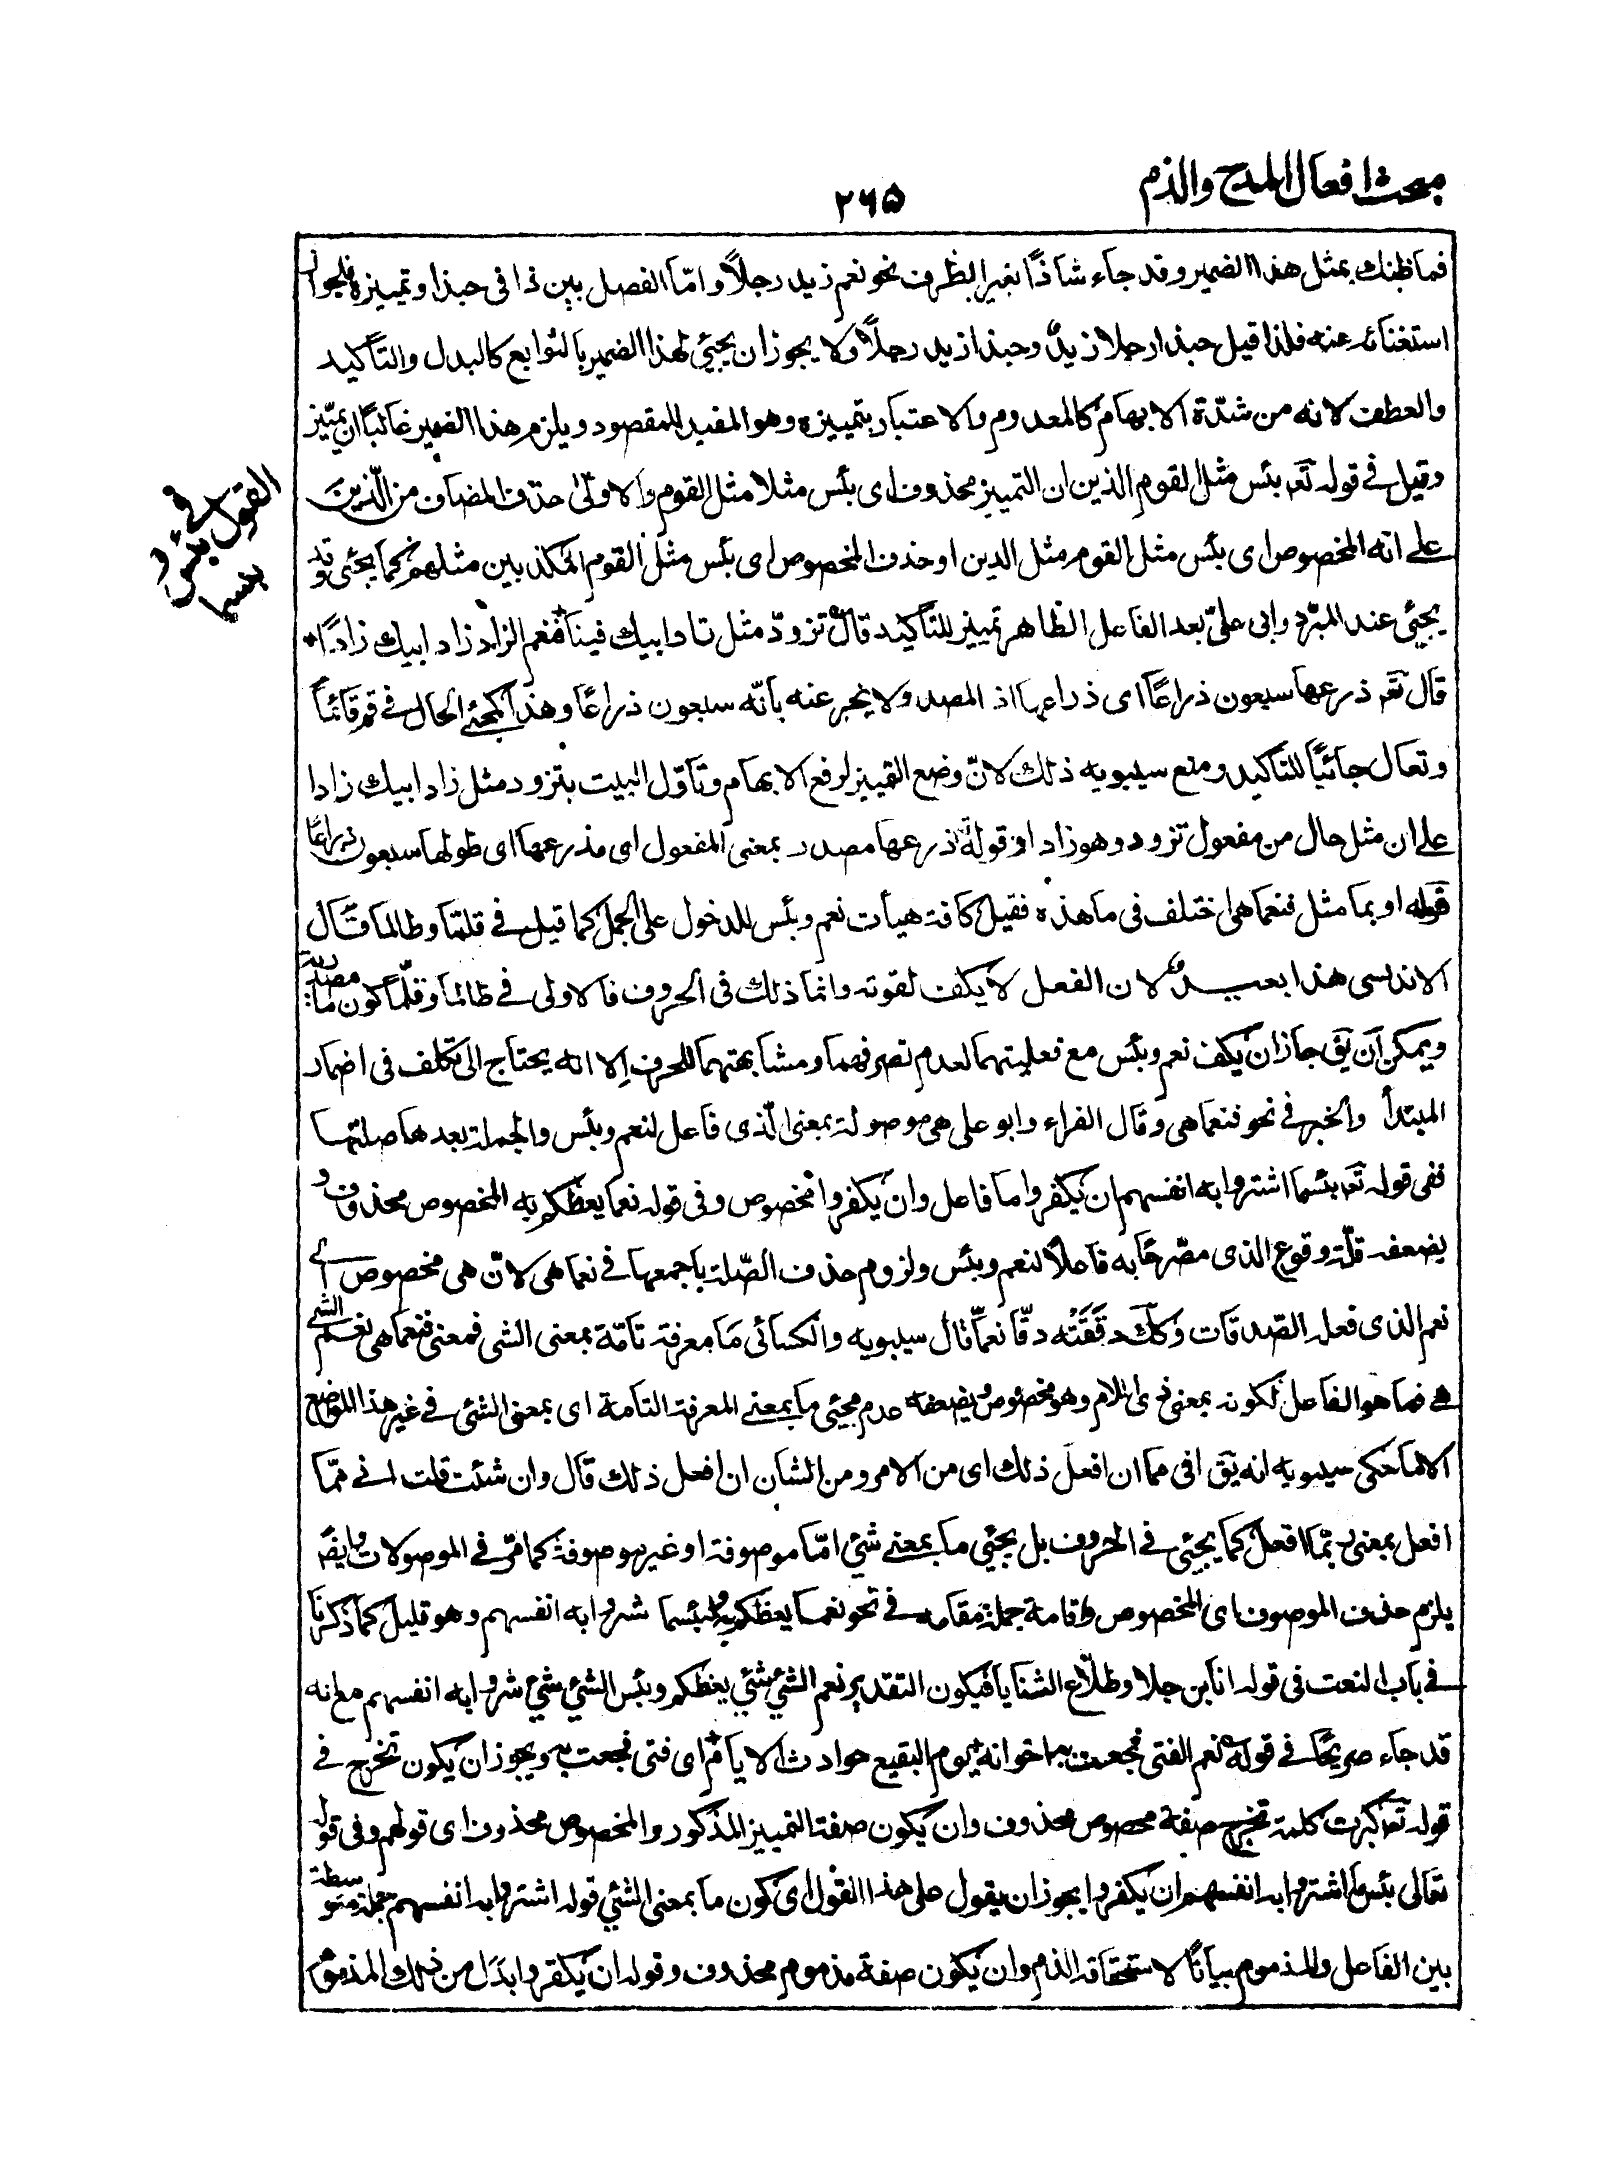 مبحث افعال المدح والذم
٢۶۵
فما ظنك بمثل هذا الضمير وقد جاء شاذًا بغير الظرف نحو نعم زيد رجلاً وامّا الفصل بين ذا فى حبذا وتميزه فلجواز
استغنائه عنه فلذا قيل حبذا رجلا زيدٌ وحبذا زيد رجلاً ولا يجوز ان يجيئ لهذا الضمير بالتوابع كالبدل والتأكيد
والعطف لانه من شدّة الابهام كالمعدوم والاعتبار بتمييزه وهو المفيد للمقصود ويلزم هذا الضمير غالبًا ان يمّيز
وقيل فى قوله تعـ بئس مثل القوم الذين ان التمييز محذوف اى بئس مثلا مثل القوم والاولى حذف المضاف من الّذين
على انه المخصوص اى بئس مثل القوم مثل الذين او حذف المخصوص اى بئس مثل القوم المكذبين مثلهم كما يجئى وقد
يجيئ عند المبرّد وابى علىّ بعد الفاعل الظاهر تمييز للتأكيد قال تزودّ مثل زاد ابيك فينا فنعم الزاد زاد ابيك زادًا
قال تعـ ذرعها سبعون ذراعًا اى ذراعها اذ المصدر لا يخبر عنه بأنّه سبعون ذراعًا وهذا كمجئ الحال فى قم قائمًا
وتعال جائيًا للتأكيد ومنع سيبويه ذلك لانّ وضع التمييز لرفع الابهام وتأوّل البيت بتزود مثل زاد ابيك زادا
على ان مثل حال من مفعول تزود وهو زاد او قوله تعـ ذرعها مصدر بمعنى المفعول اى مذرعها اى طولها سبعون ذراعًا
قوله او بما مثل فنعما هى اختلف فى ما هذه فقيل كافة هيأت نعم وبئس للدخول على الجمل كما قيل فى قلمّا وطالما قال
الاندلسى هذا بعيد لان الفعل لا يكف لقوته وانما ذلك فى الحروف فالاولى فى طالما وقلّما كون ما مصدرية
ويمكن ان يق جاز ان يكف نعم وبئس مع فعليتهما لعدم تصرفهما ومشابهتهما للحرف إلا انه يحتاج الى تكلف فى اضمار
المبتدأ والخبر فى نحو فنعما هى وقال الفراء وابو على هى موصولة بمعنى الّذى فاعل لنعم وبئس والجملة بعدها صلتها
ففى قوله تعـ بئسما اشتروا به انفسهم ان يكفروا ما فاعل وان يكفروا مخصوص وفى قوله نعما يعظكم به المخصوص محذوف و
يضعفه قلّة وقوع الذى مصّرحًا به فاعلاً لنعم وبئس ولزوم حذف الصّلة باجمعها فى نعما هى لانّ هى مخصوص اى
نعم الذى فعله الصّدقات وكك دققته دقّا نعمّا قال سيبويه والكسائى ما معرفة تامّة بمعنى الشى فمعنى فنعما هى نعم الشئ
هى فما هو الفاعل لكونه بمعنى ذى اللام وهو مخصوص ويضعفه عدم مجيئ ما بمعنى المعرفة التامة اى بمعنى الشئ فى غير هذا الموضع
الا ما حكى سيبويه انه يق انى مما ان افعل ذلك اى من الامر ومن الشأن ان افعل ذلك قال وان شئت قلت انى ممّا
افعل بمعنى ربّما افعل كما يجيئ فى الحروف بل يجئى ما بمعنى شئ امّا موصوفة او غير موصوفة كما مّر فى الموصولات وايضًا
يلزم حذف الموصوف اى المخصوص واقامة جملة مقامه فى نحو نعما يعظكم به وبئسما شروا به انفسهم وهو قليل كما ذكرنا
فى باب النعت فى قوله انا ابن جلا وطلّاع الثنايا فيكون التقدير نعم الشئ شئ يعظكم وبئس الشئ شئ شروا به انفسهم مع انه
قد جاء صريحًا فى قوله نعم الفتى فجعت به اخوانه يوم البقيع حوادث الايام اى فتى فجعت به ويجوز ان يكون تخرج فى
قوله تعـ كبرت كلمة تخرج صفة مخصوص محذوف وان يكون صفة التمييز المذكور والمخصوص محذوف اى قولهم وفى قوله
تعالى بئسما اشتروا به انفسهم ان يكفروا يجوز ان يقول على هذا القول اى كون ما بمعنى الشئ قوله اشتروا به انفسهم جملة متوسطة
بين الفاعل والمذموم بيانًا لاستحقاقه الذم وان يكون صفة مذموم محذوف وقوله ان يكفروا بدل من ذلك المذموم
القول فى
بئس و
بسما